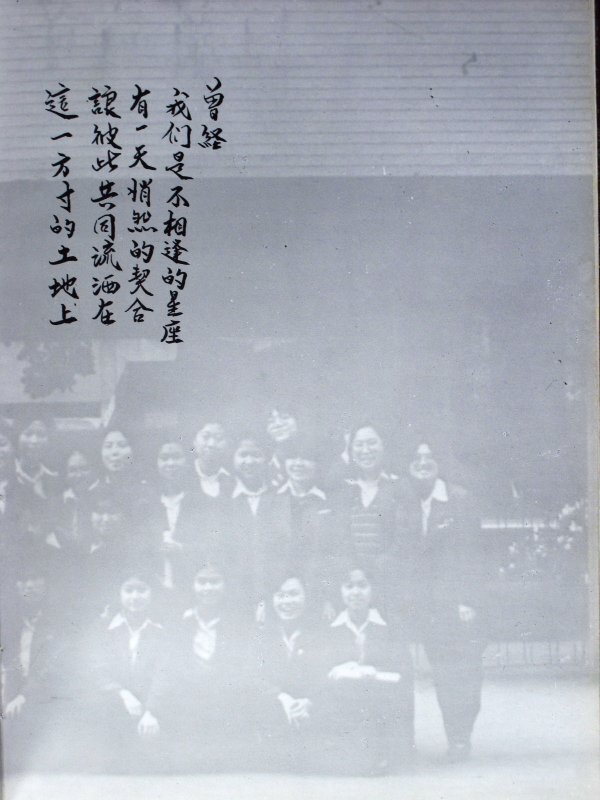 曾経
我们是不相逢的星座
有一天悄然的契合
讓彼此共同流洒在
這一方寸的土地上